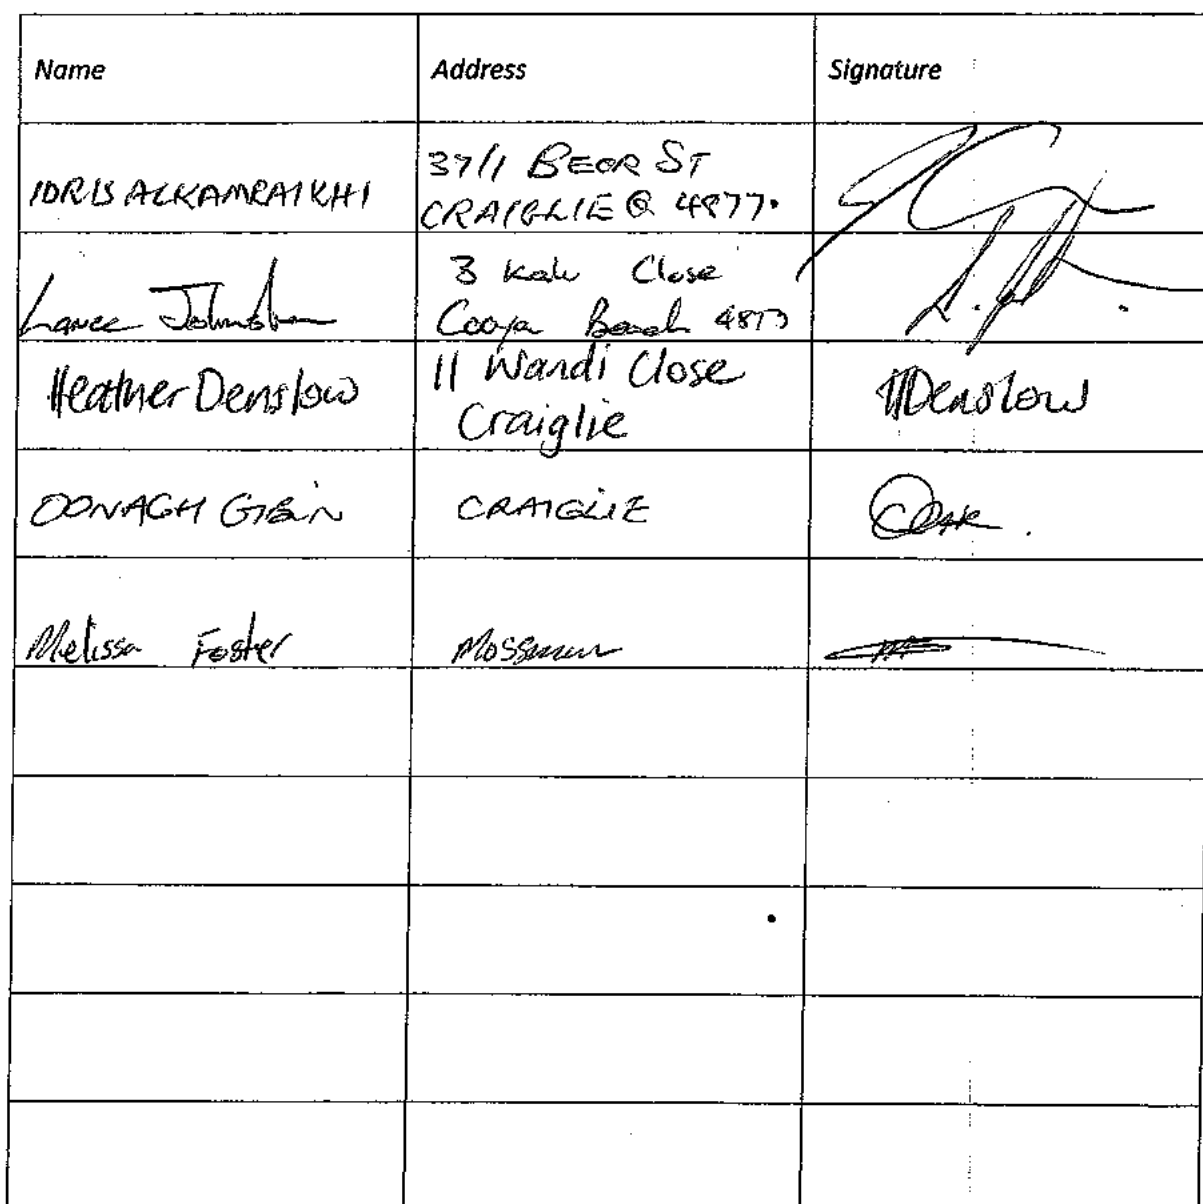 Name Address Signature
IDRIS ALKAMRAIKHI 37/1 BEOR ST
CRAIGLIE Q 4877.
Lance Johnston 3 Close
Cooya Beach 4873
Heather Denslow 11 Wandi Close HDenslow
Craiglie
OONAGH CRAIGLIE
Melissa Foster Mossman